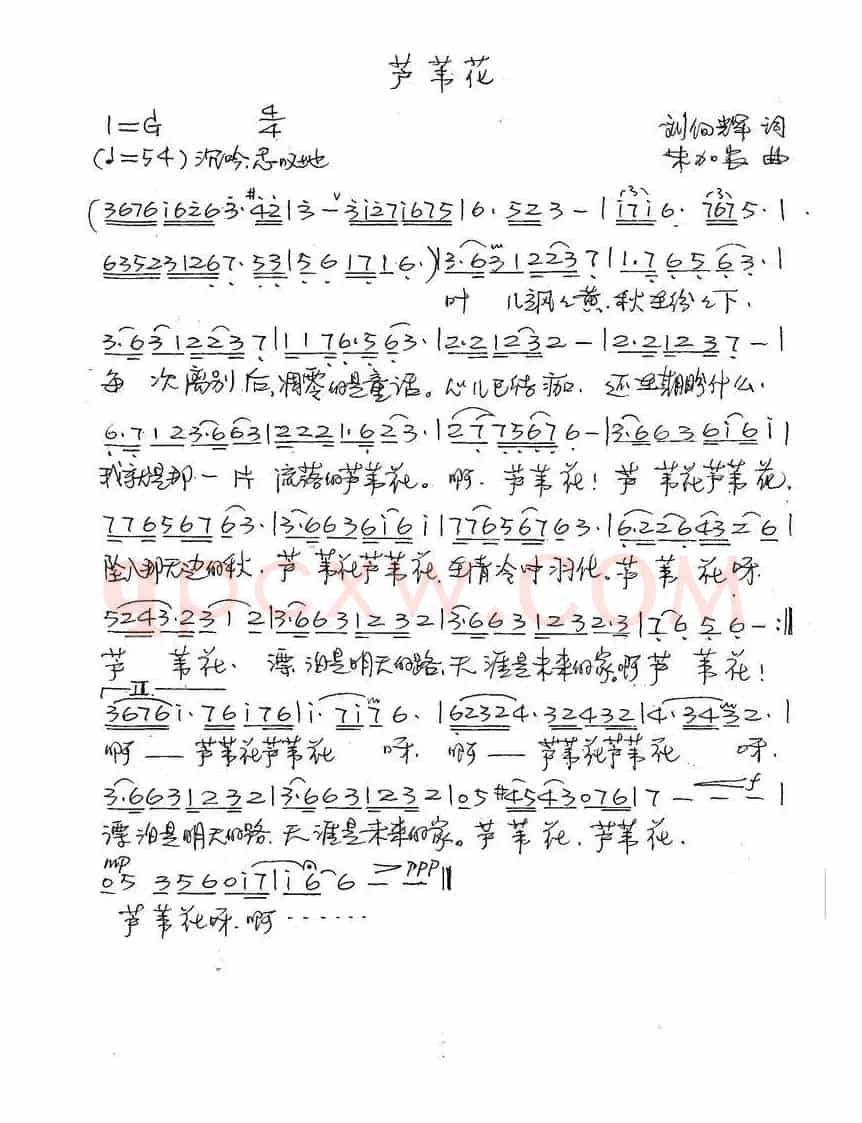 芦苇花
1=G 4/4 刘伯辉 词
(♩=54) 沉吟、思叹地 朱加农 曲
(3676i6263·#42|3-3i27i675|6·523-|i7i6·7675·|
635231267·53|56i7i6·)|3·6312237|1·76563·|
叶 儿飒飒黄,秋至纷纷下、
3·6312237|1176·563·|2·21232-|2·21237-|
每 次离别后,凋零的是童话。心儿已结痂. 还在期盼什么、
6·7123·663|2221·623·|2775676-|3·6636i6i|
我就是那一片 流落的芦苇花。啊、芦苇花!芦 苇花芦苇花,
77656763·|3·6636i6i|77656763·|6·2264326|
坠入那天边的秋、芦 苇花芦苇花,在清冷中羽化。芦 苇 花呀
5243·2312|3·6631232|3·6631232·3|7656-:||
芦 苇花、漂泊是明天的路、天涯是未来的家。啊芦 苇花!
II.
3676i·76i76|i·7i76·|62324·32432|4·3432·|
啊——芦苇花芦苇花 呀, 啊——芦苇花芦苇花 呀.
3·6631232|3·6631232|05#4543076|7--- f|
漂泊是明天的路、天涯是未来的家。芦苇花,芦苇花,
mp ppp
05 3560i7|i66--||
芦苇花呀.啊……
qpcxw.com